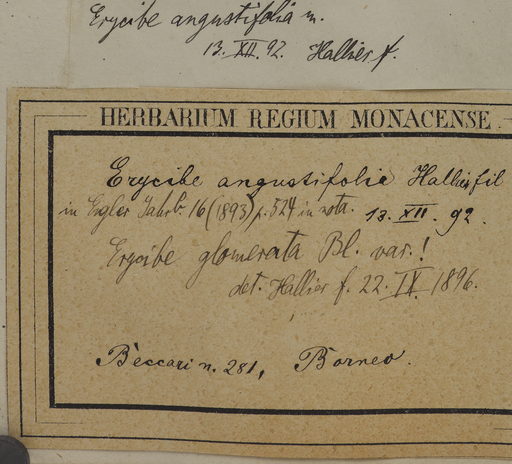 Erycibe angustifolia m.
13. XII. 92. Hallier f.
HERBARIUM REGIUM MONACENSE
Erycibe angustifolia Hallier fil
in Engler Jahrb. 16 (1893) p. 524 in nota. 13. XII. 92.
Erycibe glomerata Bl. var.!
det. Hallier f. 22. IX. 1896.
Beccari n. 281, Borneo.